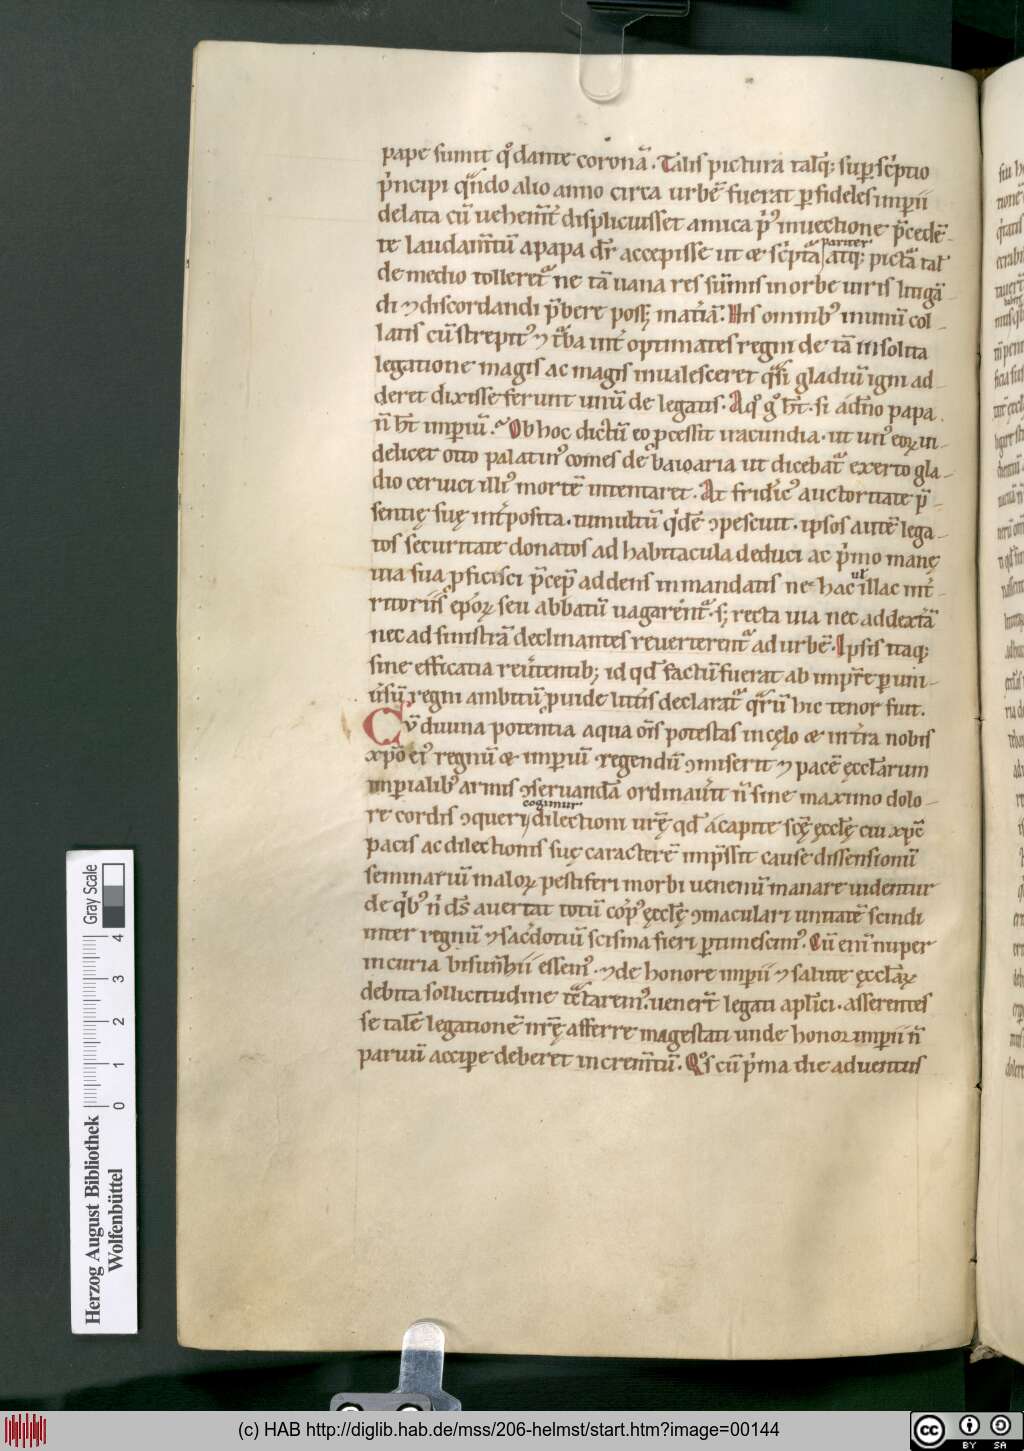 pape sumit q̊ dante coronā. Talis pictura talisq; sup̱scͥptio
pͥncipi qn̄do alio anno circa urbē fuerat p̱ fideles imp̱ii
delata cū uehem̄t̄ displicuisset amica pͥ inuectione p̄cedē-
te laudam̄tū a papa dr̄ accepisse ut & scͥptͣa pariter atq; pictͣa tal̄
de medio tolleretͣ ne tā uana res sūmis in orbe uiris litigā
di ⁊ discordandi p̄bere poss; mat̄iā. His omnibꝰ in unū col-
latis cū strepitꝰ ⁊ tͣba int̄ optimates regni de tā insolita
legatione magis ac magis inualesceret qͣsi gladiū igni ad-
deret dixisse ferunt unū de legatis. A qͦ gͦ h̄t. si a dn̄o papa
n̄ h̄t imp̱iū. Ob hoc dictū eo p̱cessit iracundia. ut unꝰ eoꝝ ui-
delicet otto palatinꝰ comes de baioaria ut dicebatͣ exerto gla-
dio ceruici illiꝰ mortē intentaret. At fridic̄ꝰ auctoritate p̄-
sentię suę int̄posita. tumultū qͥdē ꝯpescuit. ipsos autē lega-
tos securitate donatos ad habitacula deduci ac pͥmo manę
uia sua p̱ficisci p̄cep̄ addens in mandatis ne hac uł illac int̄
ritoriis ep̄oꝝ seu abbatū uagarent̄ͣ. s; recta uia nec ad dextͣā
nec ad sinistrā declinantes reuerterentͣ ad urbē. Ipsis itaq;
sine efficatia reūtentib; id qd̄ factū fuerat ab imp̱re p̱ uni-
ūsū regni ambitū p̱uide litt̄is declaratͣ qͣrū hic tenor fuit.
Cū diuina potentia a qua om̄s potestas in cęlo & in tr̄a nobis
xp̄o eiꝰ regnū & imp̱iū regendū ꝯmiserit ⁊ pacē ęccl̄arum
imp̱ialibꝰ armis ꝯseruandā ordinauit̄ n̄ sine maximo dolo-
re cordis ꝯqueri cogimur dilectioni ur̄ę qd̄ a capite scę̄ ęccl̄ę cui xpc̄
pacis ac dilectionis suę caracterē imp̄ssit cause dissensionū
seminariū maloꝝ pestiferi morbi uenenū manare uidentur
de qͥbꝰ n̄ ds̄ auertat totū corpꝰ ęccl̄ę ꝯmaculari unitatē scindi
inter regnū ⁊ sac̄dotiū scisma fieri p̱timescimꝰ. Cū enī nuper
in curia bisunt̄ii essemꝰ. ⁊ de honore imp̱ii ⁊ salute ęccl̄aꝝ
debita sollicitudine tͣctaremꝰ. uener̄t legati apl̄ici. asserentes
se talē legationē nr̄ę afferre magestati unde honor imp̱ii n̄
paruū accip̱e deberet increm̄tū. Qͦs cū pͥma die aduentus
Gray Scale
0 1 2 3 4
Herzog August Bibliothek
Wolfenbüttel
(c) HAB http://diglib.hab.de/mss/206-helmst/start.htm?image=00144
cc BY SA